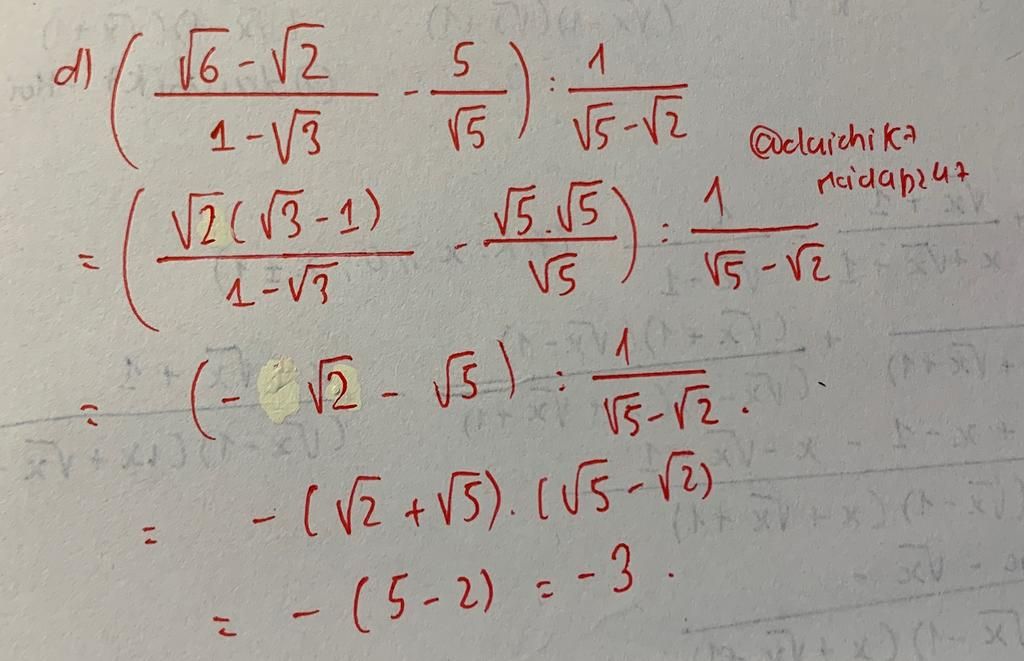 d) ( (√6 - √2)/(1 - √3) - 5/√5 ) : 1/(√5 - √2)
@daichik7
= ( √2(√3 - 1)/(1 - √3) - √5.√5/√5 ) : 1/(√5 - √2)
= (- √2 - √5) : 1/(√5 - √2).
= - (√2 + √5).(√5 - √2)
= - (5 - 2) = -3.